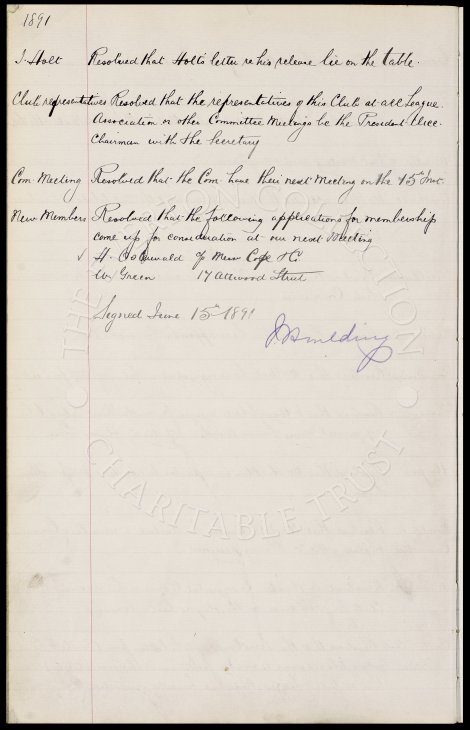 1891
J. Holt Resolved that Holt's letter re his release lie on the table.
Club representatives Resolved that the representatives of this Club at all League
Association or other Committee Meetings be the President Vice-
Chairman with the Secretary
Com Meeting Resolved that the Com have their next Meeting on the 15th Inst.
New Members Resolved that the following applications for membership
come up for consideration at our next Meeting
✓ H. Oswald of Messrs Cope & C
W. Green 17 Attwood Street
Signed June 15th 1891
THE
COLLECTION
CHARITABLE TRUST